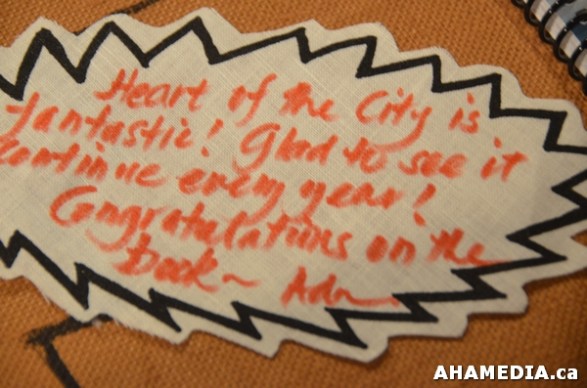 Heart of the City is
fantastic! Glad to see it
continue every year!
Congratulations on the
book~
AHAMEDIA.ca